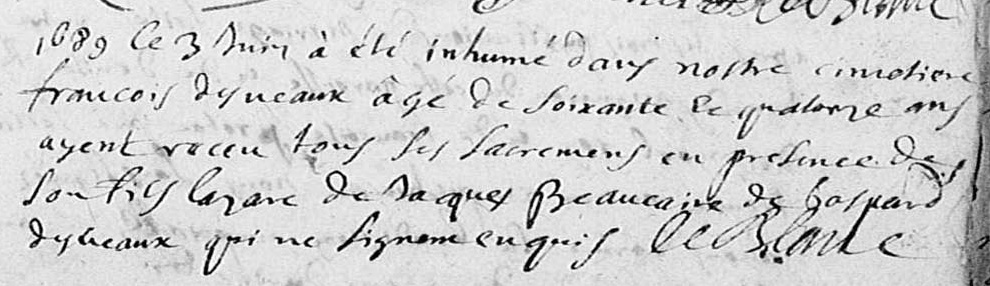 le Blanc
1689 le 3 Juin à été inhumé dans nostre cimetiere
francois dysueaux âgé de soixante et quatorze ans
ayent receu tous ses sacremens en presence de
son fils lazare de Jaques Beaucaire de Gaspard
dysueaux qui ne signent enquis le Blanc